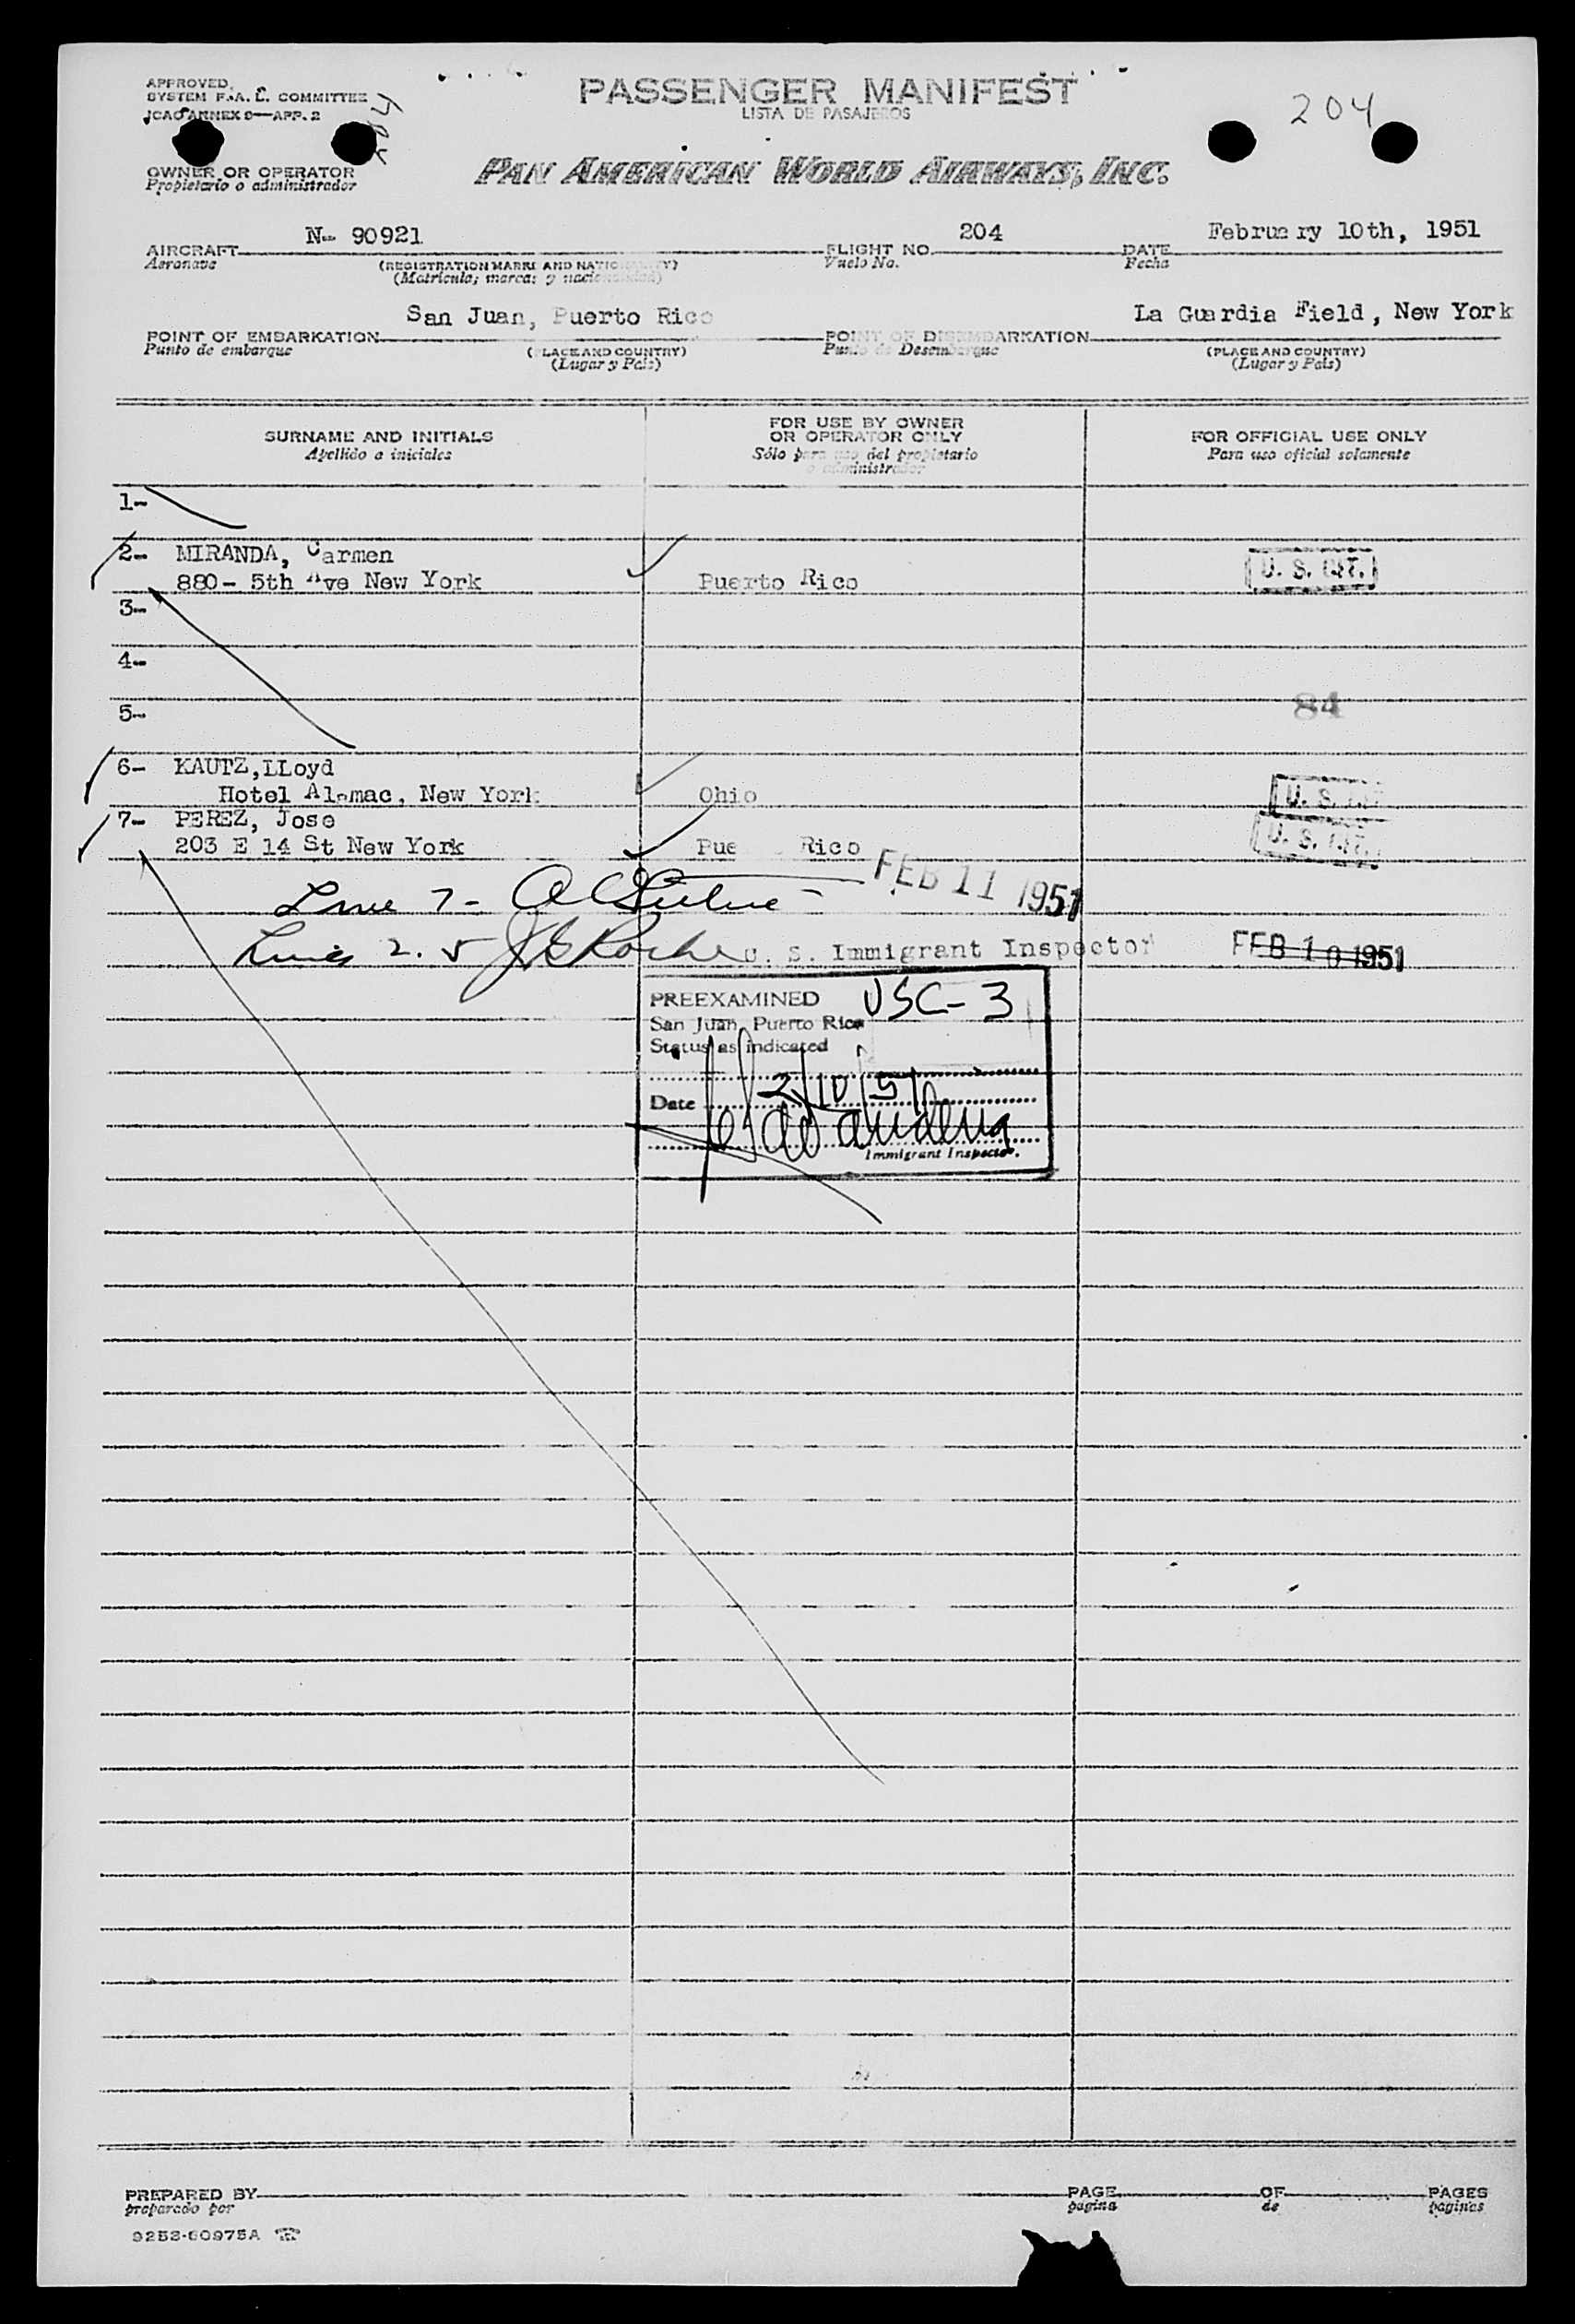 APPROVED
SYSTEM F.A.L. COMMITTEE
ICAO ANNEX 9—APP. 2
PASSENGER MANIFEST
LISTA DE PASAJEROS
204
OWNER OR OPERATOR
Propietario o administrador
PAN AMERICAN WORLD AIRWAYS, INC.
AIRCRAFT N- 90921 FLIGHT NO. 204 DATE February 10th, 1951
Aeronave (REGISTRATION MARKS AND NATIONALITY) Vuelo No. Fecha
(Matricula; marcas y nacionalidad)
POINT OF EMBARKATION San Juan, Puerto Rico POINT OF DISEMBARKATION La Guardia Field, New York
Punto de embarque (PLACE AND COUNTRY) Punto de Desembarque (PLACE AND COUNTRY)
(Lugar y País) (Lugar y País)
SURNAME AND INITIALS FOR USE BY OWNER OR OPERATOR ONLY FOR OFFICIAL USE ONLY
Apellido a iniciales Sólo para uso del propietario o administrador Para uso oficial solamente
1-
2- MIRANDA, Carmen
880- 5th Ave New York Puerto Rico U. S. CIT.
3-
4-
5- 84
6- KAUTZ,LLoyd
Hotel Alamac, New York Ohio U. S. CIT.
7- PEREZ, Jose
203 E 14 St New York Pue Rico U. S. CIT.
Line 7- FEB 11 1951
Lines 2. 5 U. S. Immigrant Inspector FEB 10 1951
PREEXAMINED USC-3
San Juan, Puerto Rico
Status as indicated
Date 2/10/51
Immigrant Inspector.
PREPARED BY PAGE OF PAGES
preparado por pagina de paginas
9253-60975A